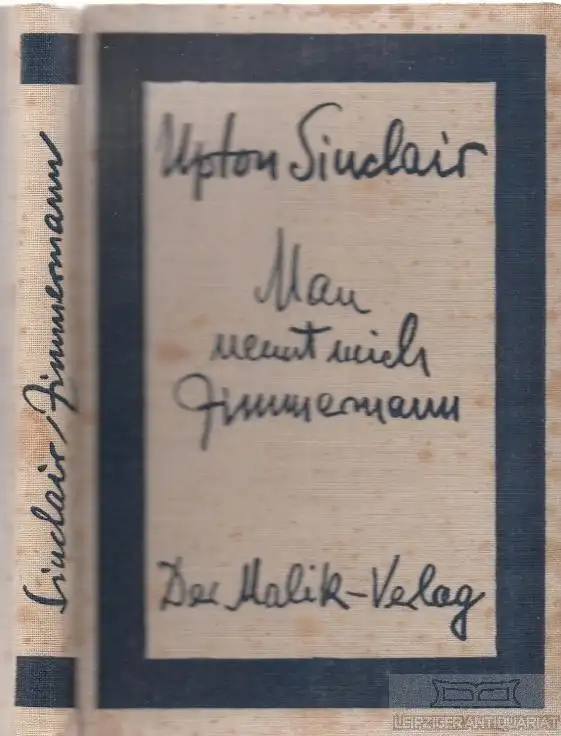 Sinclair / Zimmermann
Upton Sinclair
Man
nennt mich
Zimmermann
Der Malik-Verlag
LEIPZIGER ANTIQUARIAT